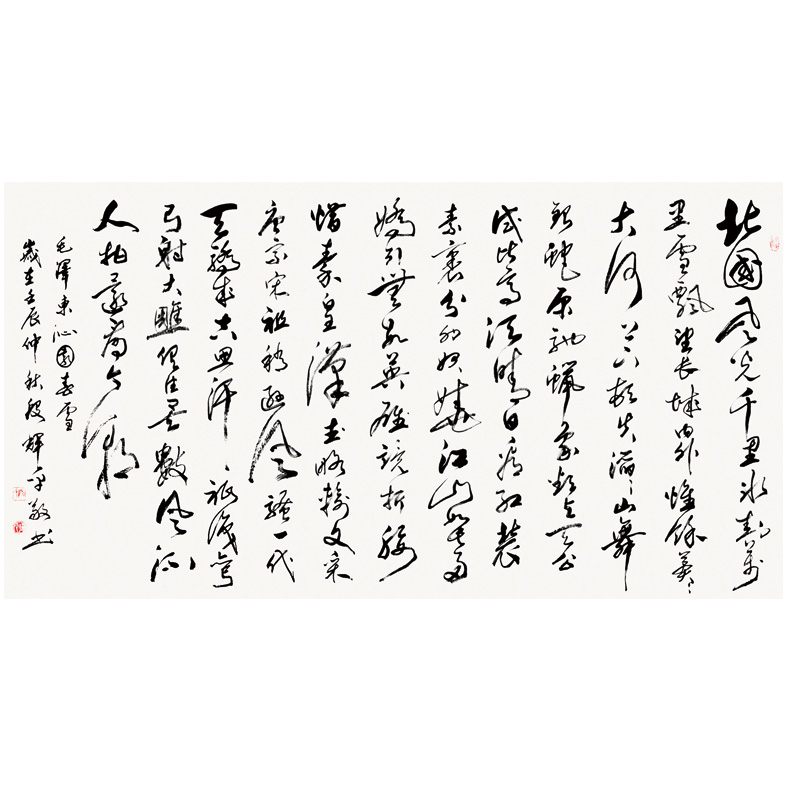 北國風光千里冰封萬
里雪飄望長城內外惟餘莽々
大河上下頓失滔々山舞
銀蛇原馳蠟象欲與天公
試比高須晴日看紅裝
素裹分外妖嬈江山如此多
嬌引無數英雄競折腰
惜秦皇漢武略輸文采
唐宗宋祖稍遜風騷一代
天驕成吉思汗祇識彎
弓射大雕俱往矣數風流
人物還看今朝
毛澤東沁園春雪
歲在壬辰仲秋段輝平敬書